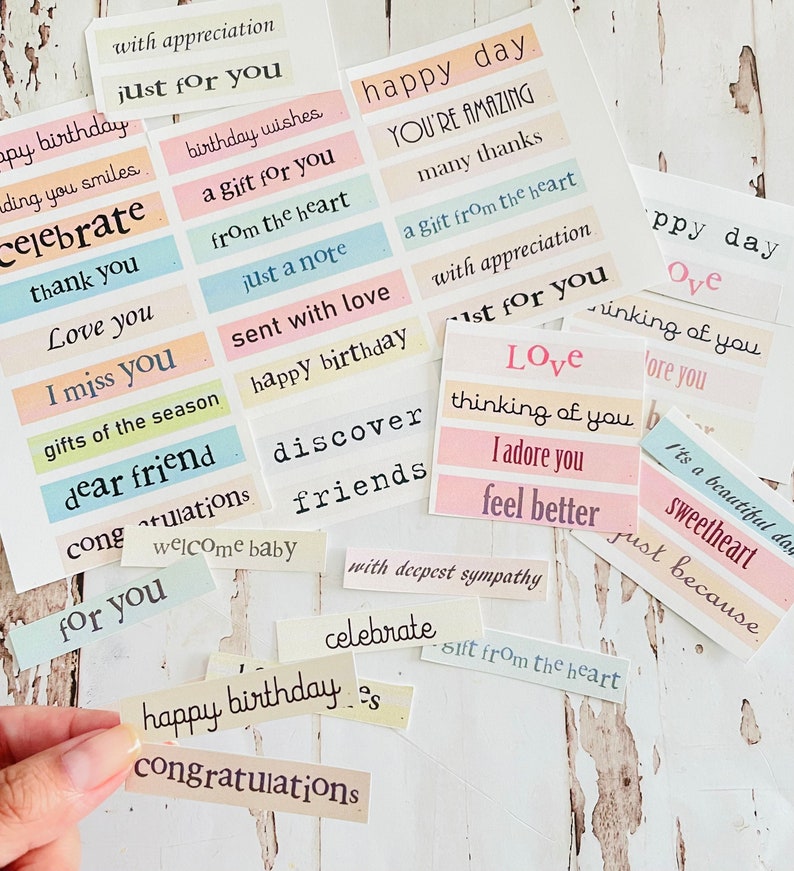 with appreciation
just for you
ppy birthday
ding you smiles
celebrate
thank you
Love you
I miss you
gifts of the season
dear friend
congratulations
birthday wishes
a gift for you
from the heart
just a note
sent with love
happy birthday
discover
friends
happy day
YOU'RE AMAZING
many thanks
a gift from the heart
with appreciation
ust for you
ppy day
ove
hinking of you
dore you
better
Love
thinking of you
I adore you
feel better
I'ts a beautiful day
sweetheart
just because
welcome baby
for you
with deepest sympathy
celebrate
gift from the heart
es
happy birthday
congratulations